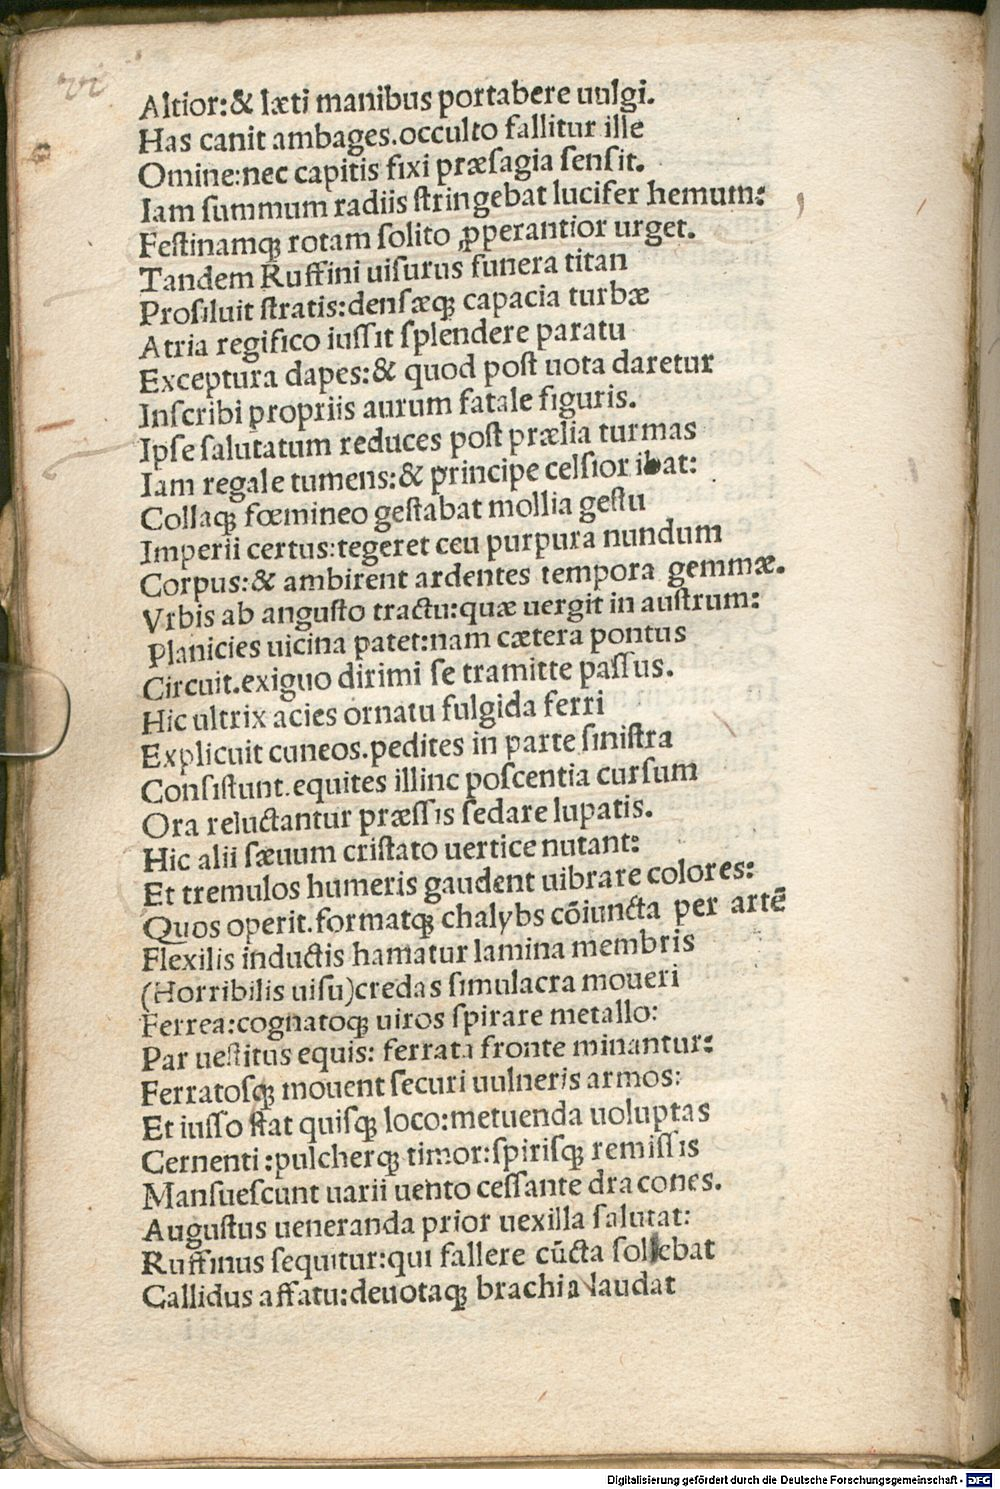 vi
Altior:& læti manibus portabere uulgi.
Has canit ambages.occulto fallitur ille
Omine:nec capitis fixi præsagia sensit.
Iam summum radiis stringebat lucifer hemum:
Festinamq; rotam solito ꝓperantior urget.
Tandem Ruffini uisurus funera titan
Prosiluit stratis:densæq; capacia turbæ
Atria regifico iussit splendere paratu
Exceptura dapes:& quod post uota daretur
Inscribi propriis aurum fatale figuris.
Ipse salutatum reduces post prælia turmas
Iam regale tumens:& principe celsior ibat:
Collaq; fœmineo gestabat mollia gestu
Imperii certus:tegeret ceu purpura nundum
Corpus:& ambirent ardentes tempora gemmæ.
Vrbis ab angusto tractu:quæ uergit in austrum:
Planicies uicina patet:nam cætera pontus
Circuit.exiguo dirimi se tramitte passus.
Hic ultrix acies ornatu fulgida ferri
Explicuit cuneos.pedites in parte sinistra
Consistunt.equites illinc poscentia cursum
Ora reluctantur præssis sedare lupatis.
Hic alii sæuum cristato uertice nutant:
Et tremulos humeris gaudent uibrare colores:
Quos operit.formatq; chalybs cōiuncta per artē
Flexilis inductis hamatur lamina membris
(Horribilis uisu)credas simulacra moueri
Ferrea:cognatoq; uiros spirare metallo:
Par uestitus equis: ferrata fronte minantur:
Ferratosq; mouent securi uulneris armos:
Et iusso stat quisq; loco:metuenda uoluptas
Cernenti:pulcherq; timor:spirisq; remissis
Mansuescunt uarii uento cessante dracones.
Augustus ueneranda prior uexilla salutat:
Ruffinus sequitur:qui fallere cūcta sollebat
Callidus affatu:deuotaq; brachia laudat
Digitalisierung gefördert durch die Deutsche Forschungsgemeinschaft - DFG